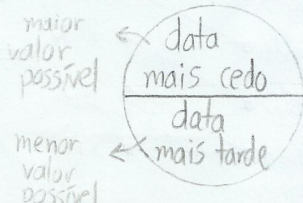 maior
valor
possível
data
mais cedo
data
mais tarde
menor
valor
possível